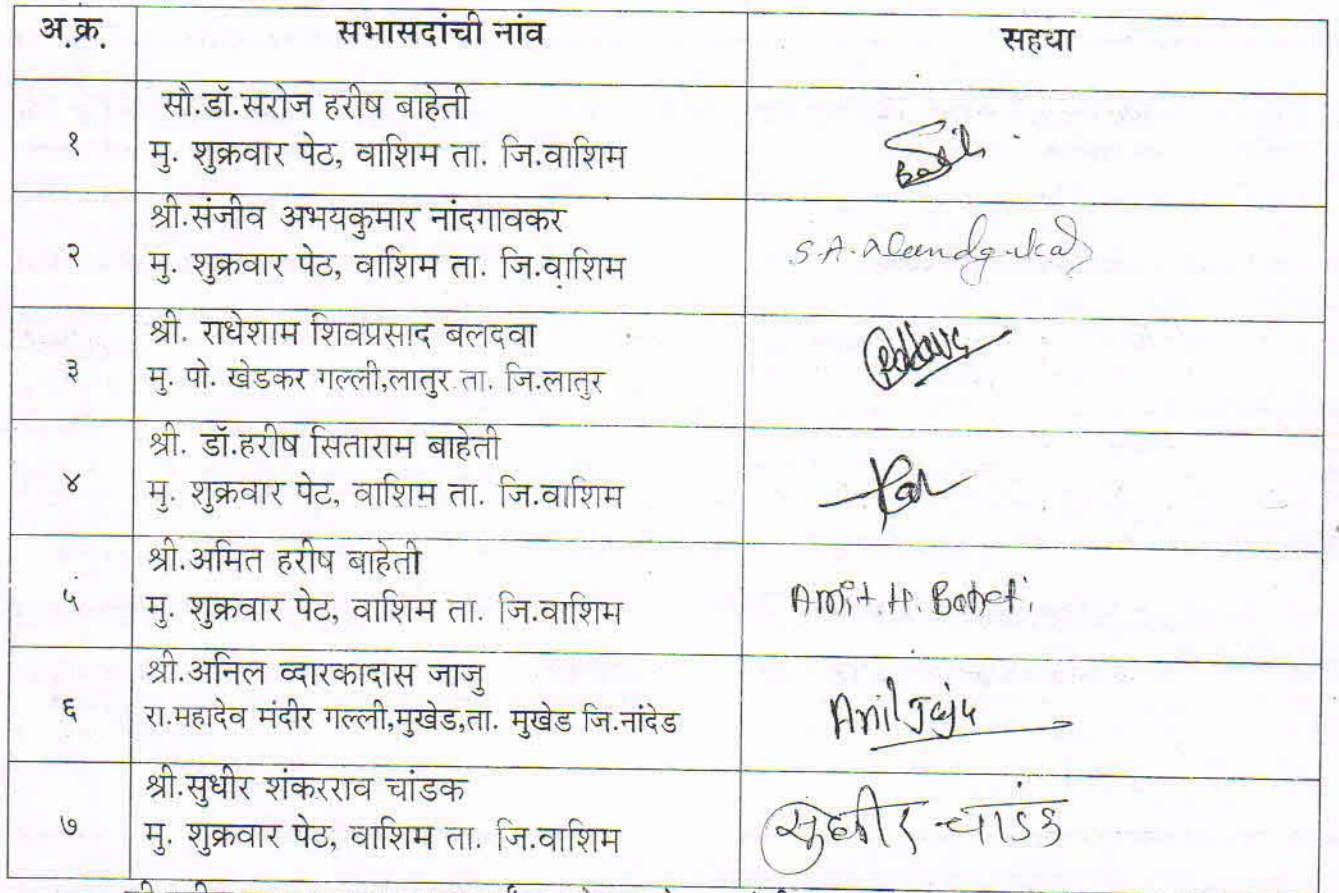 अ.क्र. सभासदांची नांव सहया
सौ.डॉ.सरोज हरीष बाहेती
१ मु. शुक्रवार पेठ, वाशिम ता. जि.वाशिम
श्री.संजीव अभयकुमार नांदगावकर
२ मु. शुक्रवार पेठ, वाशिम ता. जि.वाशिम
श्री. राधेशाम शिवप्रसाद बलदवा
३ मु. पो. खेडकर गल्ली,लातुर ता. जि.लातुर
श्री. डॉ.हरीष सिताराम बाहेती
४ मु. शुक्रवार पेट, वाशिम ता. जि.वाशिम
श्री.अमित हरीष बाहेती
५ मु. शुक्रवार पेट, वाशिम ता. जि.वाशिम Amit. H. Baheti.
श्री.अनिल व्दारकादास जाजु
६ रा.महादेव मंदीर गल्ली,मुखेड,ता. मुखेड जि.नांदेड Anil Jaju
श्री.सुधीर शंकरराव चांडक
७ मु. शुक्रवार पेठ, वाशिम ता. जि.वाशिम सुधीर चांडक